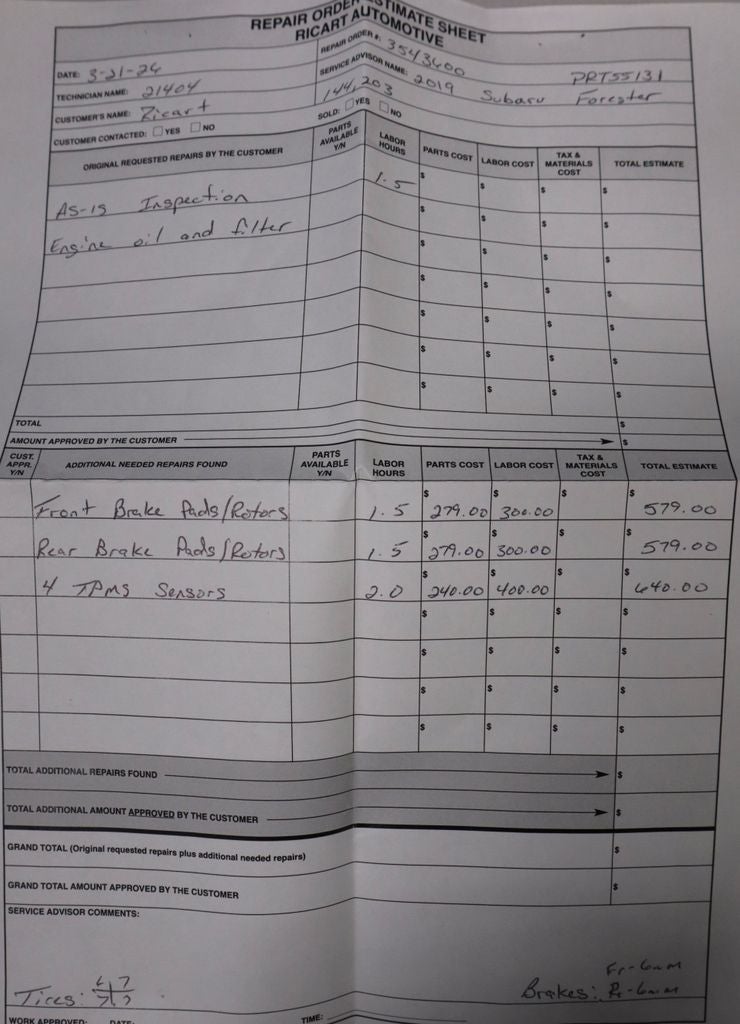 REPAIR ORDER ESTIMATE SHEET
RICART AUTOMOTIVE
DATE: 3-21-24
REPAIR ORDER #: 3543600
TECHNICIAN NAME: 21404
SERVICE ADVISOR NAME: 2019 Subaru Forester PRT55131
CUSTOMER'S NAME: Ricart
144,203
CUSTOMER CONTACTED: YES NO
SOLD: YES NO
ORIGINAL REQUESTED REPAIRS BY THE CUSTOMER PARTS AVAILABLE Y/N LABOR HOURS PARTS COST LABOR COST TAX & MATERIALS COST TOTAL ESTIMATE
AS-IS Inspection 1.5 $ $ $ $
Engine oil and filter $ $ $ $
$ $ $ $
$ $ $ $
$ $ $ $
$ $ $ $
$ $ $ $
TOTAL $
AMOUNT APPROVED BY THE CUSTOMER $
CUST. APPR. Y/N ADDITIONAL NEEDED REPAIRS FOUND PARTS AVAILABLE Y/N LABOR HOURS PARTS COST LABOR COST TAX & MATERIALS COST TOTAL ESTIMATE
Front Brake Pads/Rotors 1.5 $279.00 $300.00 $ $579.00
Rear Brake Pads/Rotors 1.5 $279.00 $300.00 $ $579.00
4 TPMS Sensors 2.0 $240.00 $400.00 $ $640.00
$ $ $ $
$ $ $ $
$ $ $ $
$ $ $ $
TOTAL ADDITIONAL REPAIRS FOUND $
TOTAL ADDITIONAL AMOUNT APPROVED BY THE CUSTOMER $
GRAND TOTAL (Original requested repairs plus additional needed repairs) $
GRAND TOTAL AMOUNT APPROVED BY THE CUSTOMER $
SERVICE ADVISOR COMMENTS:
Tires: 6 7
7 7
Fr-6mm
Brakes: Rr-6mm
WORK APPROVED: DATE: TIME: